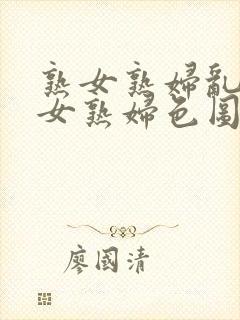 熟女熟婦亂
女熟婦色圖
廖國清